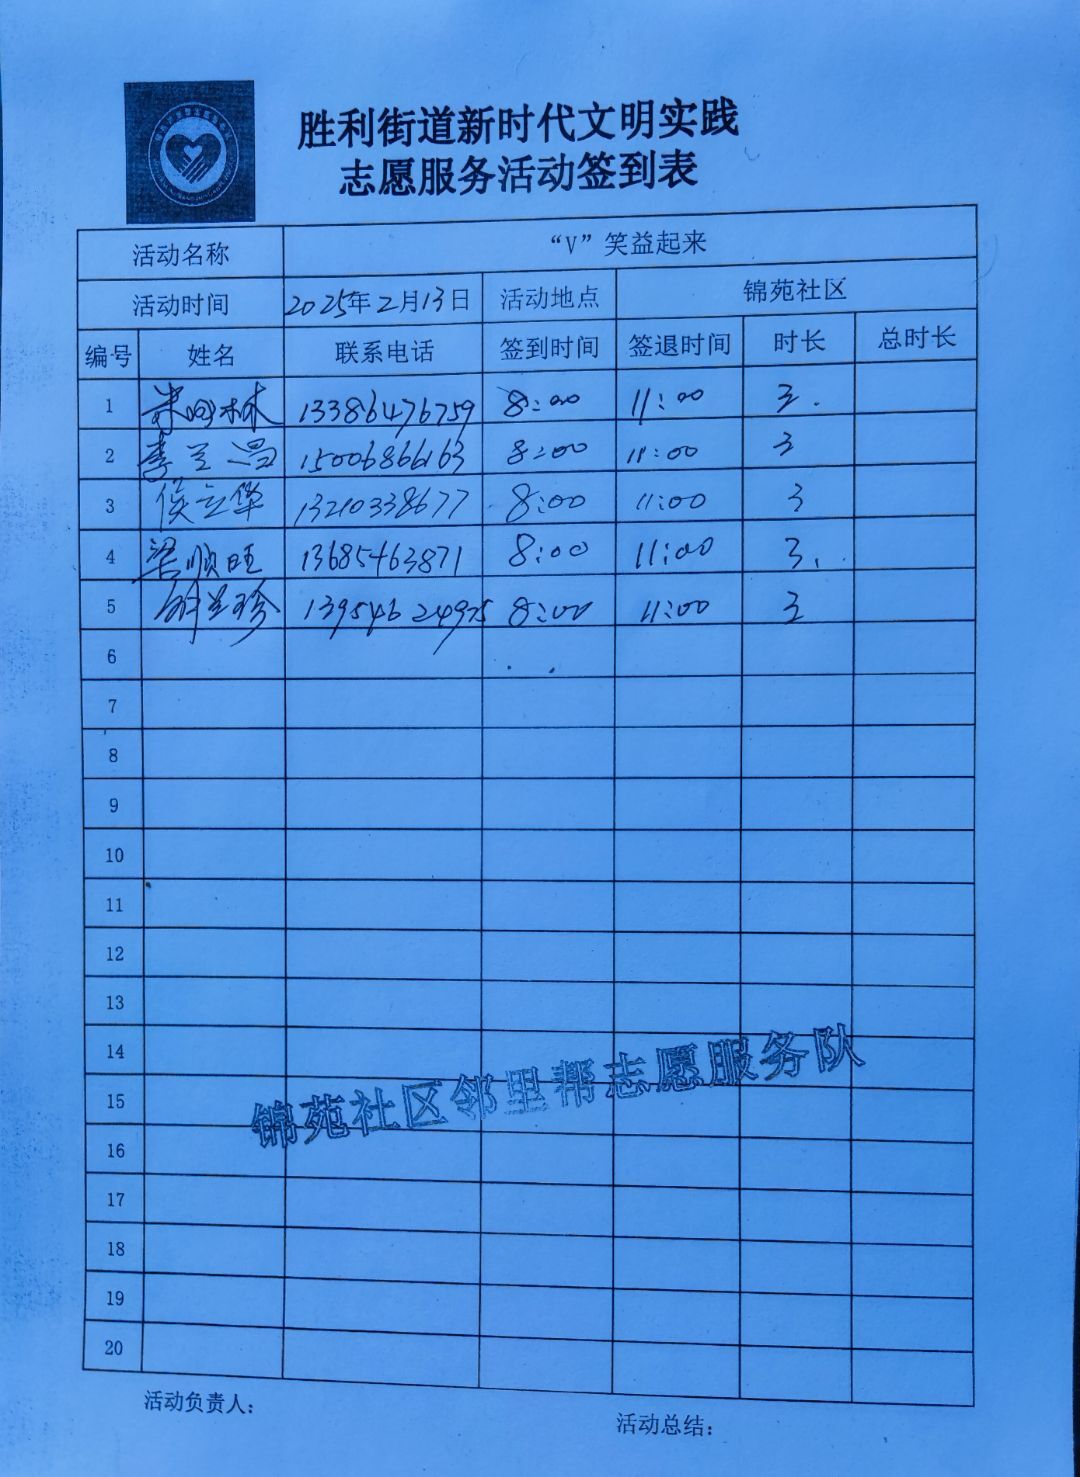 胜利街道新时代文明实践
志愿服务活动签到表
活动名称 “V”笑益起来
活动时间 2025年2月13日 活动地点 锦苑社区
编号 姓名 联系电话 签到时间 签退时间 时长 总时长
1 林 13386476759 8:00 11:00 3.
2 李兰昌 15006866163 8:00 11:00 3
3 侯立华 13210338677 8:00 11:00 3
4 梁顺旺 13685463871 8:00 11:00 3.
5 兰珍 13954624975 8:00 11:00 3
6
7
8
9
10
11
12
13
14
15
16
17
18
19
20
锦苑社区邻里帮志愿服务队
活动负责人：
活动总结：